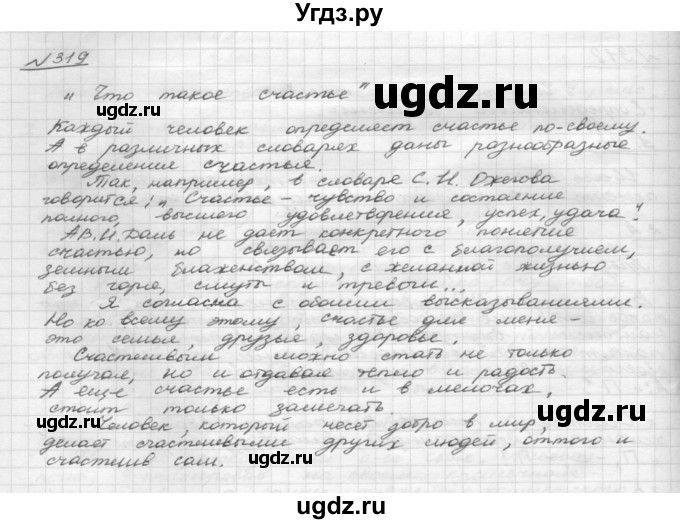 Угдз.ру
N319
„Что такое счастье"
Каждый человек определяет счастье по-своему.
А в различных словарях даны разнообразные
определения счастья.
Так, например, в словаре С.И. Ожегова
говорится: „Счастье – чувство и состояние
полного, высшего удовлетворения, успех, удача".
А В.И. Даль не даёт конкретного понятие
счастью, но связывает его с благополучием,
земным блаженством, с желанной жизнью
без горя, смуты и тревоги...
Я согласна с обоими высказываниями.
Но ко всему этому, счастье для меня –
это семья, друзья, здоровье.
Счастливым можно стать не только
получая, но и отдавая тепло и радость.
А еще счастье есть и в мелочах,
стоит только замечать.
Человек, который несёт добро в мир,
делает счастливыми других людей, оттого и
счастлив сам.
ugdz.ru
ugdz.ru
ugdz.ru
ugdz.ru
ugdz.ru
ugdz.ru
ugdz.ru
ugdz.ru
ugdz.ru
ugdz.ru
ugdz.ru